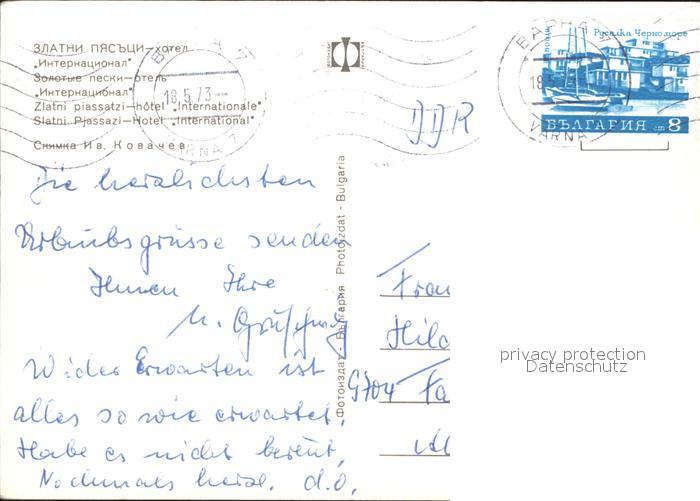 ЗЛАТНИ ПЯСЪЦИ—хотел
„Интернационал"
Золотые пески—отель
„Интернационал"
Zlatni piassatzi—hôtel „Internationale"
Slatni Pjassazi—Hotel „International"
Снимка Ив. Ковачев
ВАРНА 7
18.5.73
VARNA 7
ВАРНА 7
18.5.73
VARNA
Русалка Черноморе
БЪЛГАРИЯ ст 8
DDR
Die herzlichsten
Urlaubsgrüsse senden
Ihnen Ihre
Wider Erwarten ist
alles so wie erwartet.
Habe es nicht bereut,
Nochmals herzl. d.O.
Фотоиздат - България Photoizdat - Bulgaria
Frau
Hild
9704 Fa
privacy protection
Datenschutz